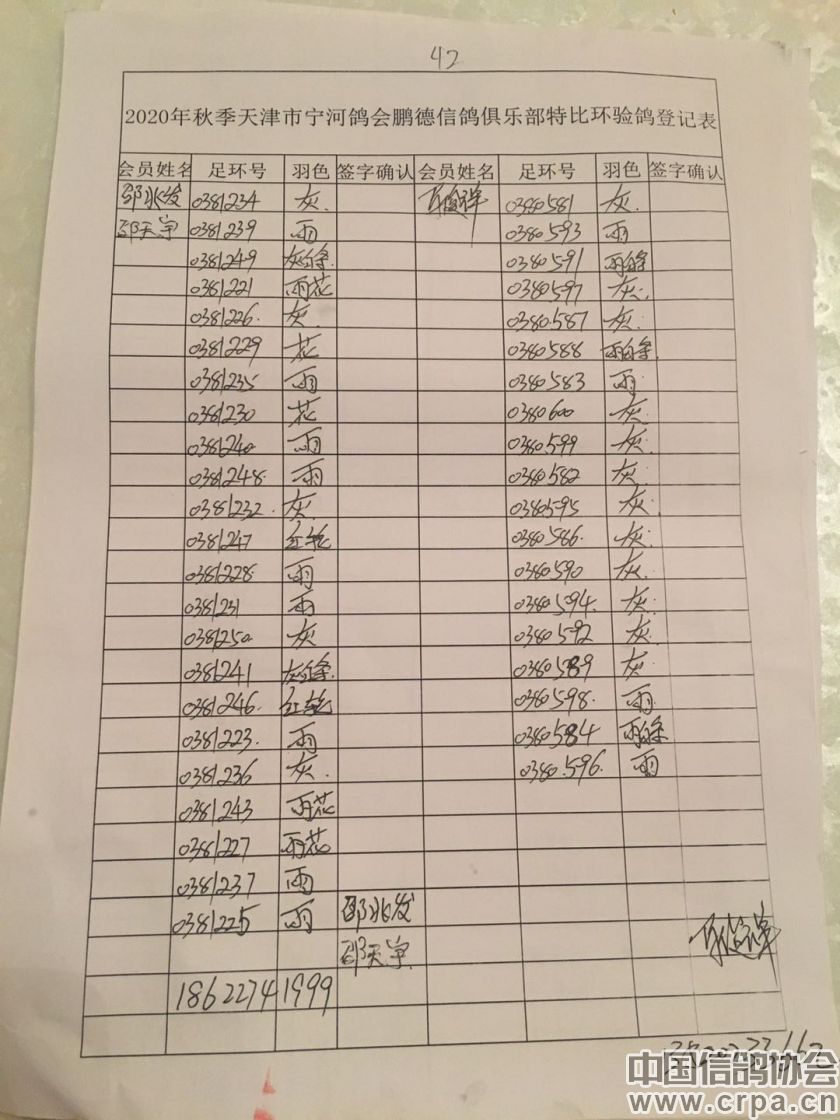 42
2020年秋季天津市宁河鸽会鹏德信鸽俱乐部特比环验鸽登记表
会员姓名 足环号 羽色 签字确认 会员姓名 足环号 羽色 签字确认
邵兆发 0381234 灰 0380581 灰
邵天宇 0381239 雨 0380593 雨
0381249 灰白条 0380591 雨白条
0381221 雨花 0380597 灰
0381226 灰 0380587 灰
0381229 花 0380588 雨白条
0381235 雨 0380583 雨
0381230 花 0380600 灰
0381240 雨 0380599 灰
0381248 雨 0380582 灰
0381232 灰 0380595 灰
0381247 红轮 0380586 灰
0381228 雨 0380590 灰
0381231 雨 0380594 灰
0381250 灰 0380592 灰
0381241 灰白条 0380589 灰
0381246 红轮 0380598 雨
0381223 雨 0380584 雨白条
0381236 灰 0380596 雨
0381243 雨花
0381227 雨花
0381237 雨
0381225 雨 邵兆发
邵天宇
18622741999
中国信鸽协会
www.crpa.cn